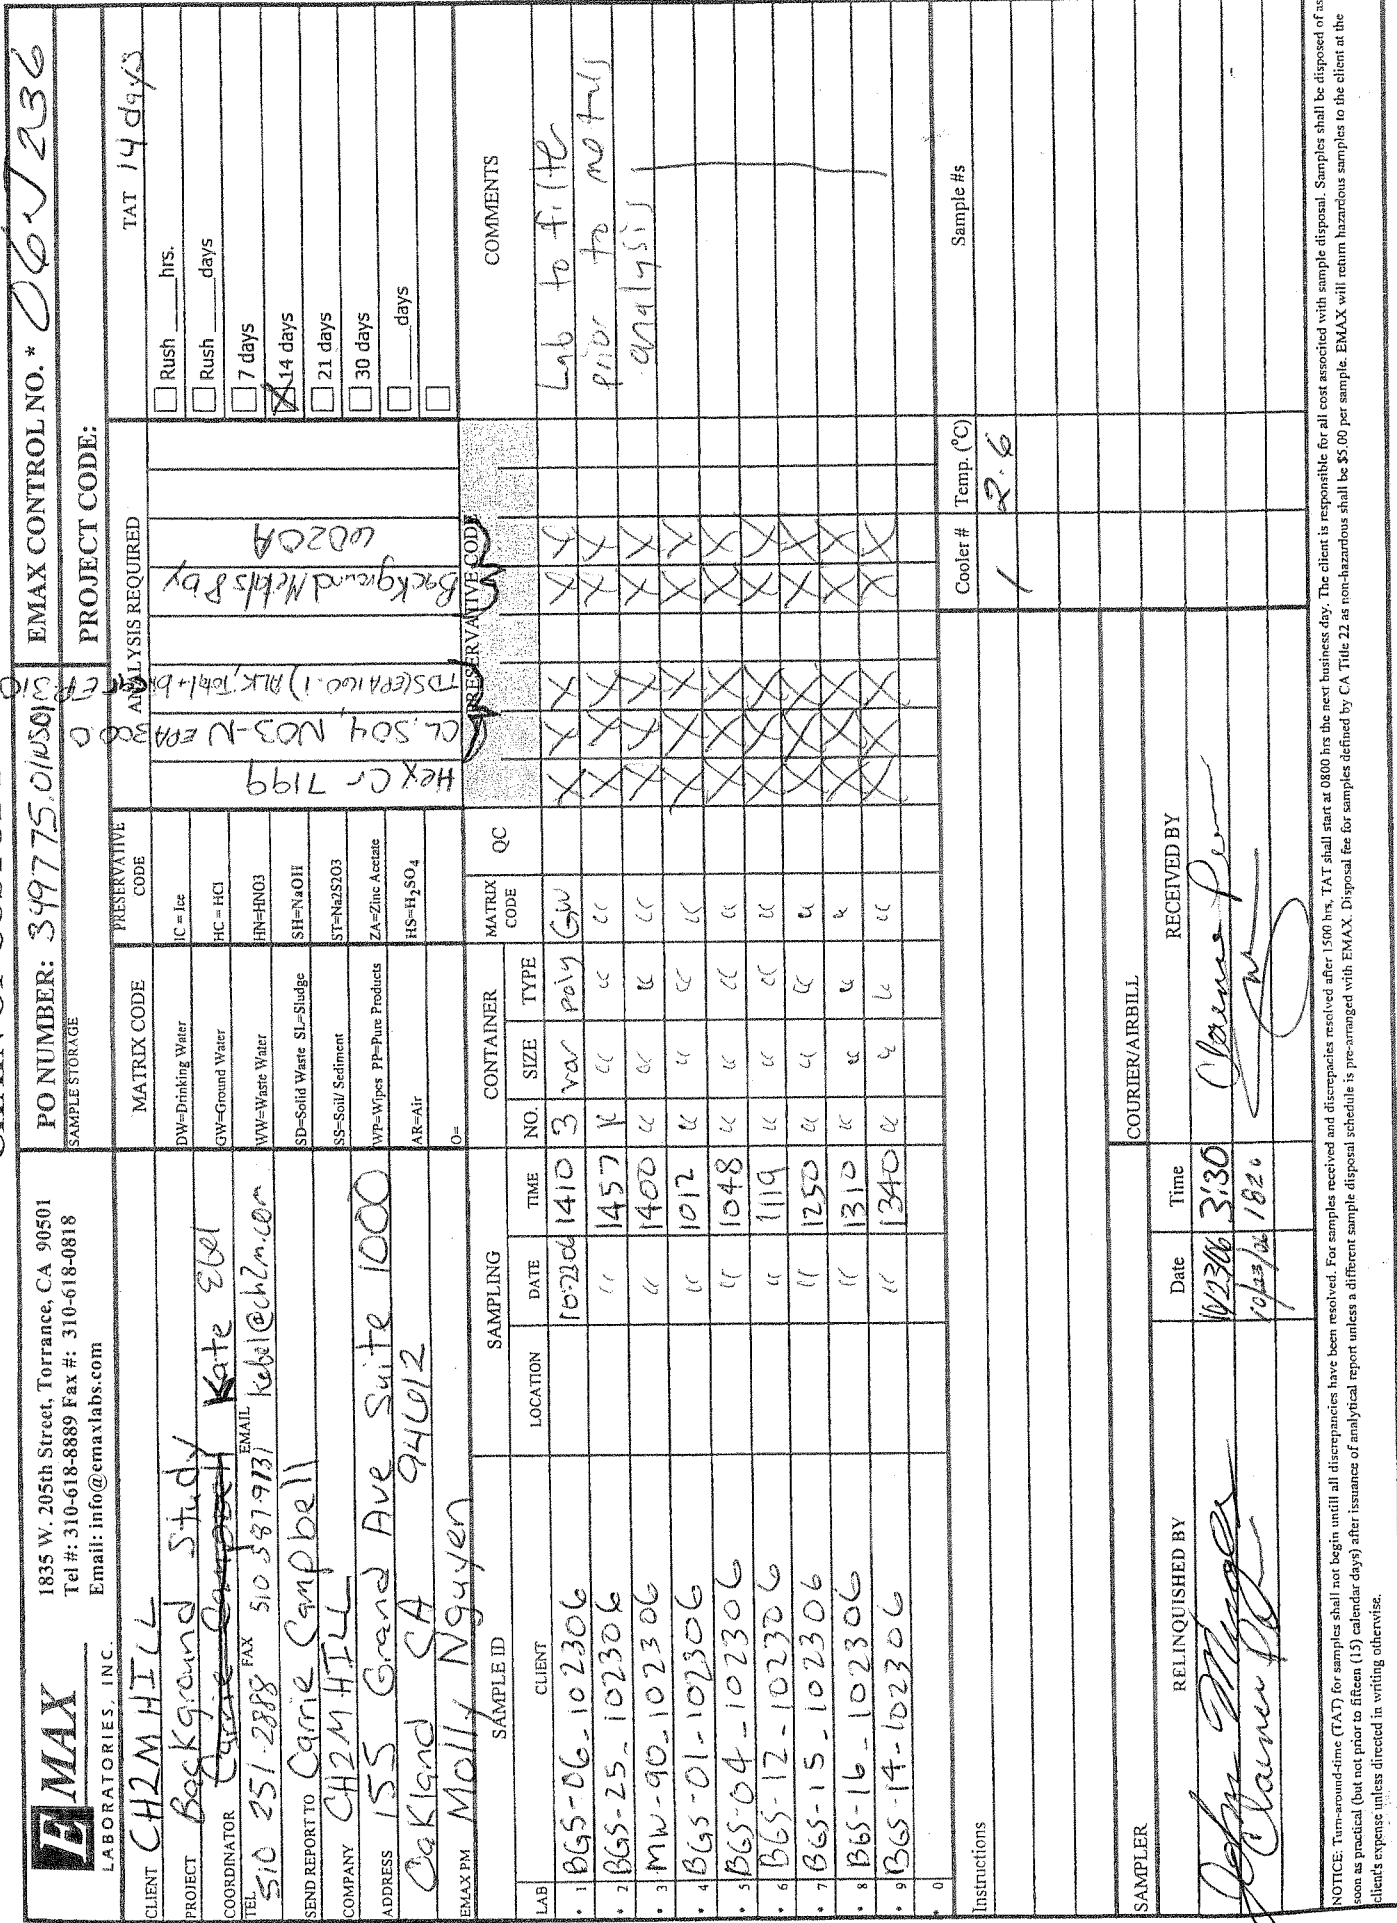 EMAX
LABORATORIES, INC.
1835 W. 205th Street, Torrance, CA 90501
Tel #: 310-618-8889 Fax #: 310-618-0818
Email: info@emaxlabs.com
PO NUMBER: 349775.01
SAMPLE STORAGE
EMAX CONTROL NO. * 06J236
PROJECT CODE:
CLIENT CH2M HILL
PROJECT Background Study
COORDINATOR Carrie Campbell Kate Ebel
TEL 510 251-2888 FAX 510 587-9131 EMAIL kebel@ch2m.com
SEND REPORT TO Carrie Campbell
COMPANY CH2M HILL
ADDRESS 155 Grand Ave Suite 1000
Oakland CA 94612
EMAX PM Molly Nguyen
MATRIX CODE
DW=Drinking Water
GW=Ground Water
WW=Waste Water
SD=Solid Waste SL=Sludge
SS=Soil/ Sediment
WP=Wipes PP=Pure Products
AR=Air
O=
PRESERVATIVE CODE
IC = Ice
HC = HCl
HN=HNO3
SH=NaOH
ST=Na2S2O3
ZA=Zinc Acetate
HS=H2SO4
ANALYSIS REQUIRED
Hex Cr 7199
CL, SO4, NO3-N EPA 300.0
TDS(EPA160.1) ALK, Total + EPA 310
Background Metals 8 by
6020A
TAT 14 days
Rush ____ hrs.
Rush ____ days
7 days
X 14 days
21 days
30 days
____ days
SAMPLE ID SAMPLING CONTAINER MATRIX CODE QC PRESERVATIVE CODE COMMENTS
LAB CLIENT LOCATION DATE TIME NO. SIZE TYPE
1 BGS-06-102306 1410 3 var poly GW X X X X X Lab to filter
2 BGS-25-102306 " 1457 " " " " X X X X X prior to metals
3 MW-90-102306 " 1400 " " " " X X X X X analysis
4 BGS-01-102306 " 1012 " " " " X X X X X
5 BGS-04-102306 " 1048 " " " " X X X X X
6 BGS-12-102306 " 1119 " " " " X X X X X
7 BGS-15-102306 " 1250 " " " " X X X X X
8 BGS-16-102306 " 1310 " " " " X X X X X
9 BGS-14-102306 " 1340 " " " " X X X X X
0
Instructions
Cooler # Temp. (°C) Sample #s
1 2.6
SAMPLER COURIER/AIRBILL
RELINQUISHED BY Date Time RECEIVED BY
John 3:30 Clarence
Clarence 10/23/06 1820
NOTICE: Turn-around-time (TAT) for samples shall not begin untill all discrepancies have been resolved. For samples received and discrepancies resolved after 1500 hrs, TAT shall start at 0800 hrs the next business day. The client is responsible for all cost associted with sample disposal. Samples shall be disposed of as
soon as practical (but not prior to fifteen (15) calendar days) after issuance of analytical report unless a different sample disposal schedule is pre-arranged with EMAX. Disposal fee for samples defined by CA Title 22 as non-hazardous shall be $5.00 per sample. EMAX will return hazardous samples to the client at the
client's expense unless directed in writing otherwise.